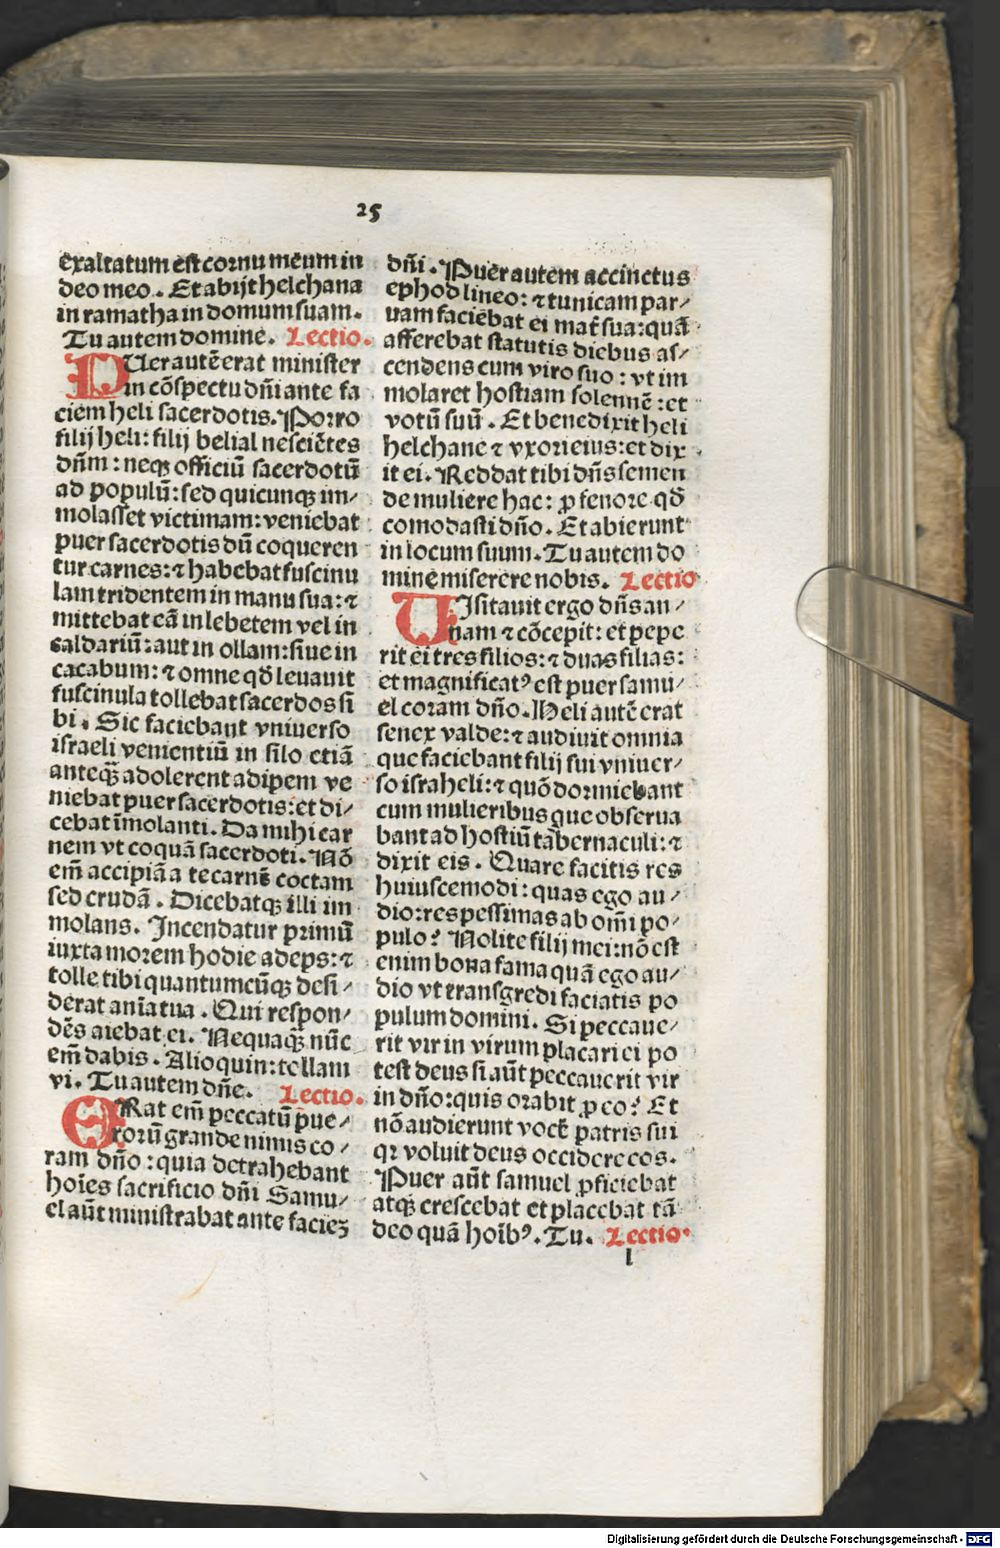 25
exaltatum est cornu meum in
deo meo. Et abijt helchana
in ramatha in domum suam.
Tu autem domine. Lectio.
PUer autē erat minister
in cōspectu dn̄i ante fa
ciem heli sacerdotis. Porro
filij heli: filij belial nesciētes
dn̄m: neqꝫ officiū sacerdotū
ad populū: sed quicunqꝫ im⸗
molasset victimam: veniebat
puer sacerdotis dū coqueren
tur carnes: ⁊ habebat fuscinu
lam tridentem in manu sua: ⁊
mittebat eā in lebetem vel in
caldariū: aut in ollam: siue in
cacabum: ⁊ omne qd̄ leuauit
fuscinula tollebat sacerdos si
bi. Sic faciebant vniuerso
israeli venientiū in silo etiā
anteqꝫ̄ adolerent adipem ve
niebat puer sacerdotis: et di⸗
cebat īmolanti. Da mihi car
nem vt coquā sacerdoti. Nō
em̄ accipiā a te carnē coctam
sed crudā. Dicebatqꝫ illi im
molans. Incendatur primū
iuxta morem hodie adeps: ⁊
tolle tibi quantumcūqꝫ desi⸗
derat anīa tua. Qui respon⸗
dēs aiebat ei. Nequaqꝫ̄ nūc
em̄ dabis. Alioquin: tollam
vi. Tu autem dn̄e. Lectio.
ERat em̄ peccatū pue⸗
rorū grande nimis co⸗
ram dn̄o: quia detrahebant
hoīes sacrificio dn̄i Samu⸗
el aūt ministrabat ante facieꝫ
dn̄i. Puer autem accinctus
ephod lineo: ⁊ tunicam par⸗
uam faciebat ei mat̄ sua: quā
afferebat statutis diebus as⸗
cendens cum viro suo: vt im
molaret hostiam solennē: et
votū suū. Et benedixit heli
helchane ⁊ vxori eius: et dix
it ei. Reddat tibi dn̄s semen
de muliere hac: ꝓ fenore qd̄
comodasti dn̄o. Et abierunt
in locum suum. Tu autem do
mine miserere nobis. Lectio
UIsitauit ergo dn̄s an⸗
nam ⁊ cōcepit: et pepe
rit ei tres filios: ⁊ duas filias:
et magnificatꝰ est puer samu⸗
el coram dn̄o. Heli autē erat
senex valde: ⁊ audiuit omnia
que faciebant filij sui vniuer⸗
so israheli: ⁊ quō dormiebant
cum mulieribus que obserua
bant ad hostiū tabernaculi: ⁊
dixit eis. Quare facitis res
huiuscemodi: quas ego au⸗
dio: res pessimas ab om̄i po⸗
pulo? Nolite filij mei: nō est
enim bona fama quā ego au⸗
dio vt transgredi faciatis po
pulum domini. Si peccaue⸗
rit vir in virum placari ei po
test deus si aūt peccauerit vir
in dn̄o: quis orabit ꝓ eo? Et
nō audierunt vocē patris sui
qꝛ voluit deus occidere eos.
Puer aūt samuel ꝓficiebat
atqꝫ crescebat et placebat tā
deo quā hoībꝰ. Tu. Lectio.
l
Digitalisierung gefördert durch die Deutsche Forschungsgemeinschaft - DFG